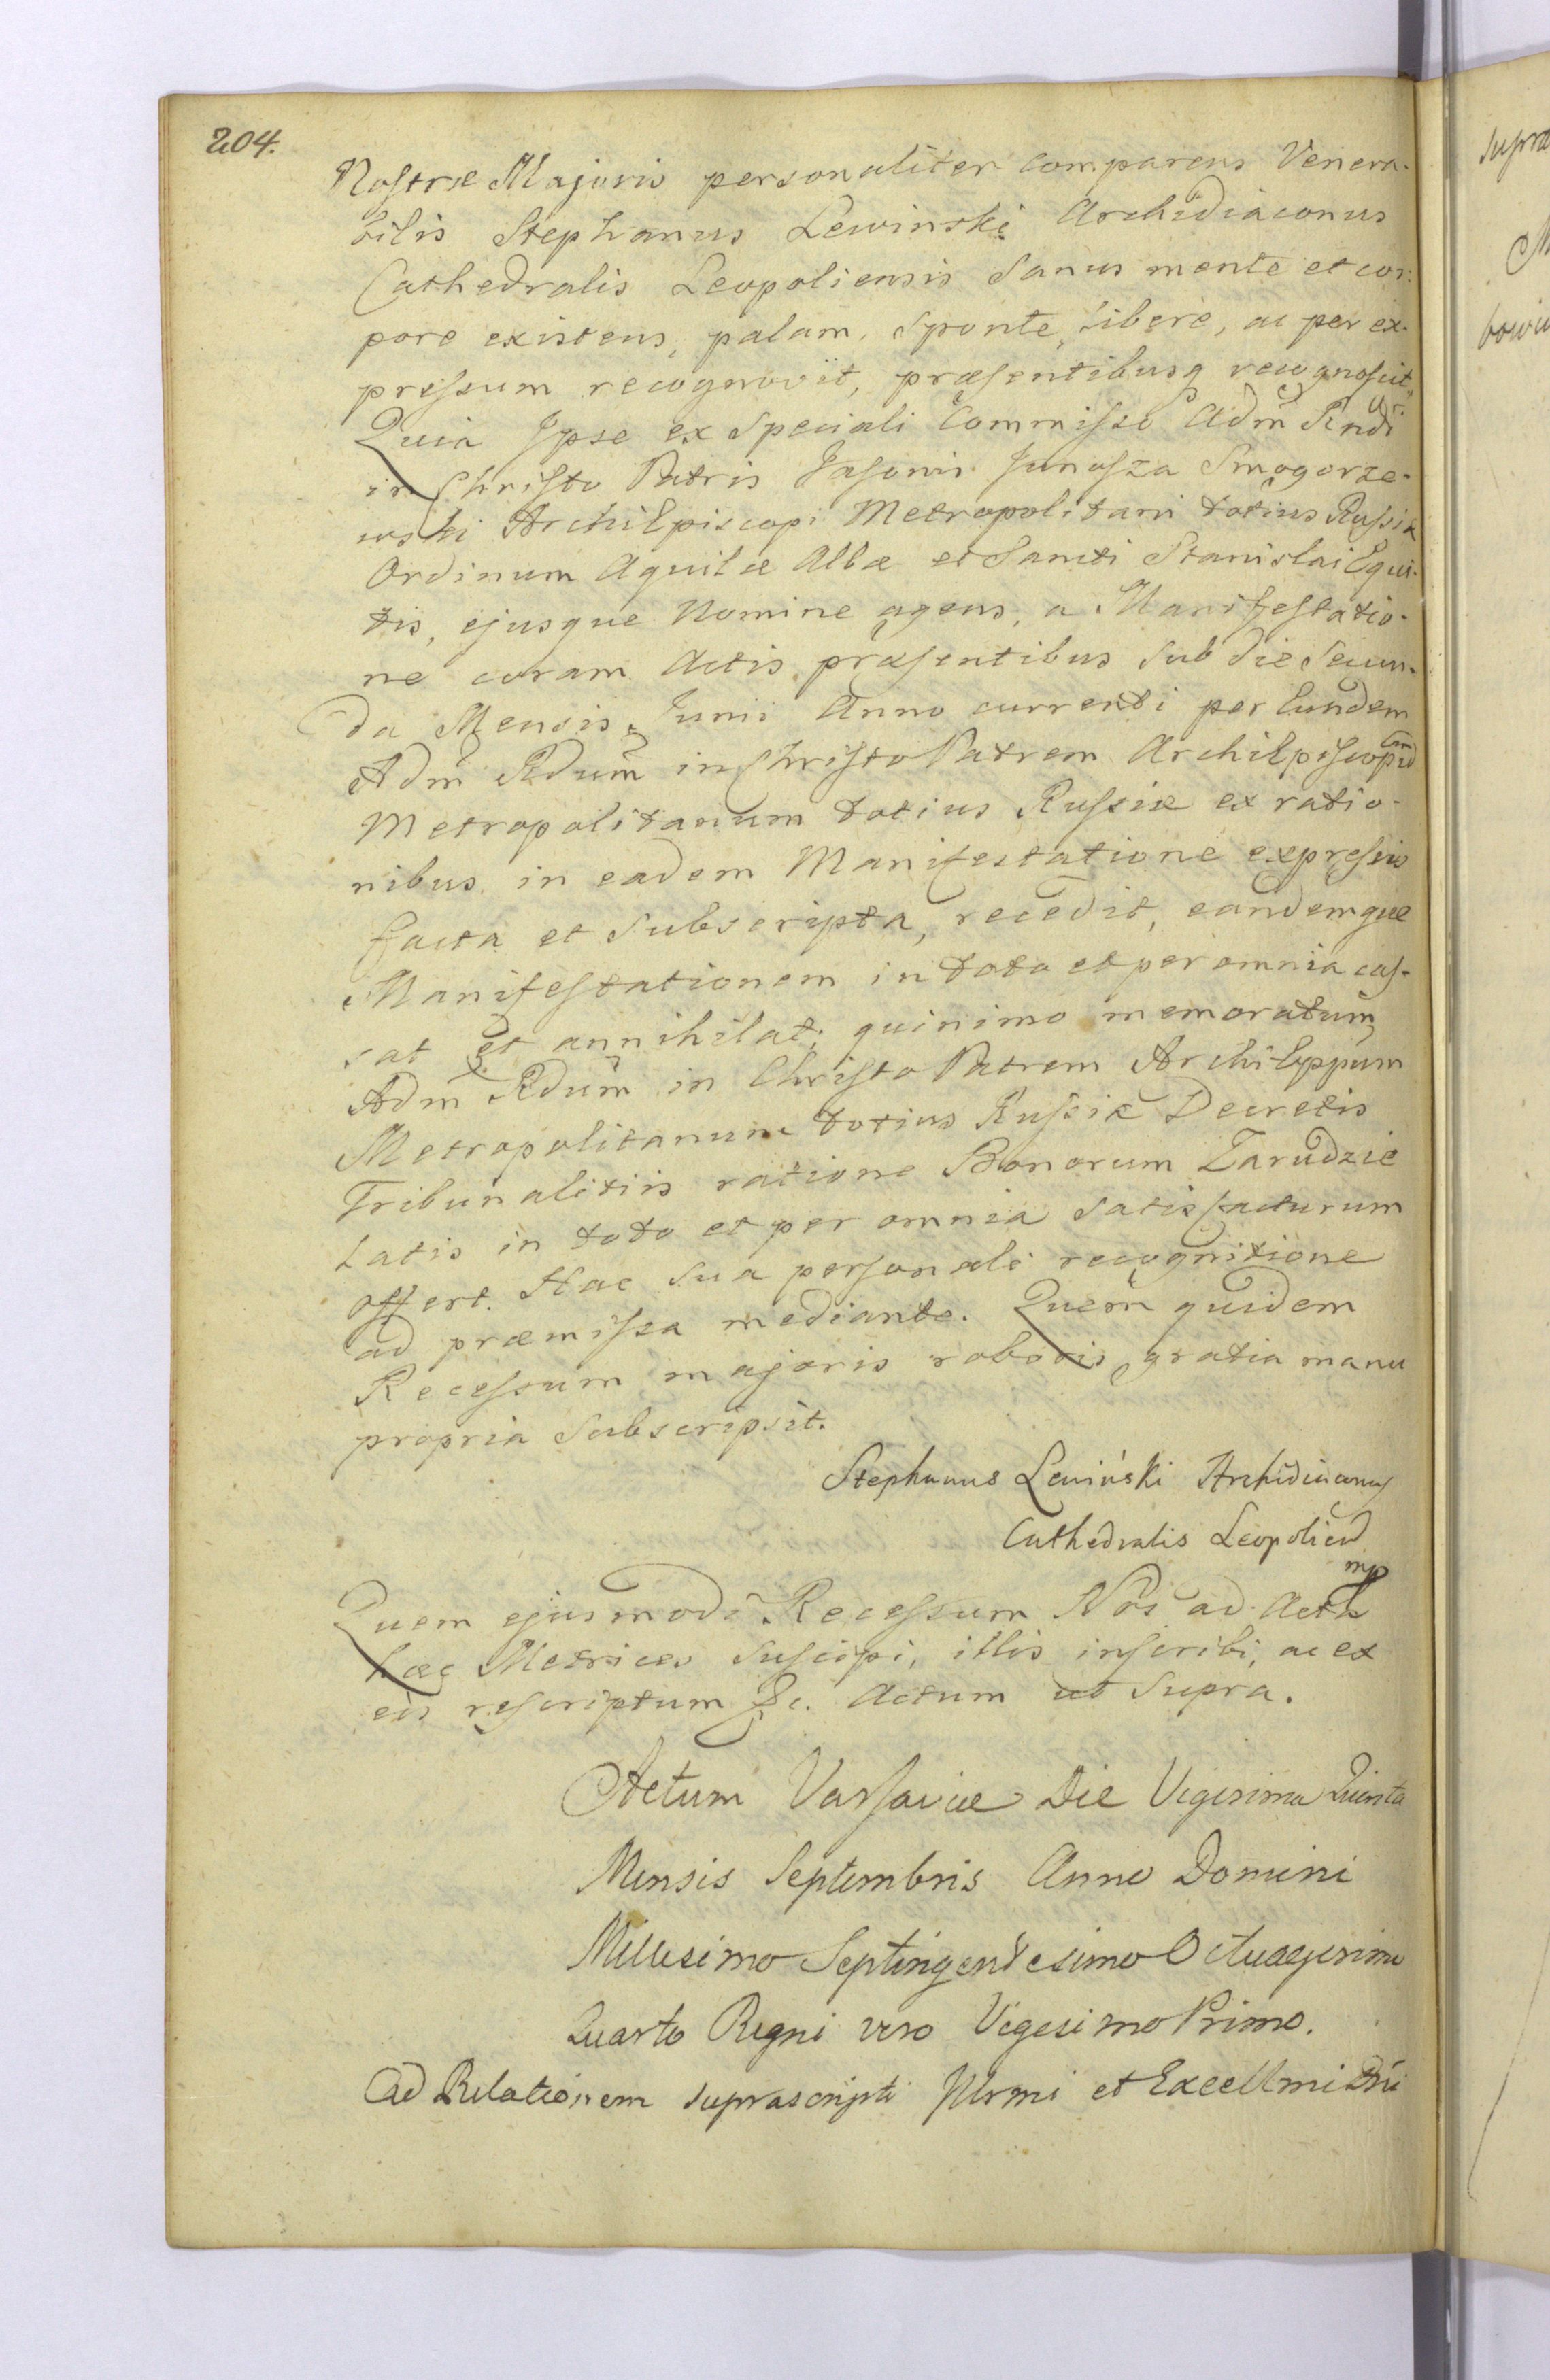 204.
Nostræ Majoris personaliter comparens Venera-
bilis Stephanus Lewinski Archidiaconus
Cathedralis Leopoliensis Sanus mente et cor-
pore existens, palam, Sponte, libere, ac per ex-
pressum recognovit, præsentibusq recognoscit,
Quia Ipse ex Speciali Commisso Adm̃ Rndi
in Christo Patris Jasonis Junosza Smogorze-
wski ArchiEpiscopi Metropolitani totius Russiæ
Ordinum Aquilæ Albæ et Sancti Stanislai Equi-
tis, ejusque Nomine agens, a Manifestatio-
ne coram Actis præsentibus Sub die Secun-
da Mensis Junii Anno currenti per Eundem
Adm̃ Rdum̃ in Christo Patrem ArchiEpiscopum
Metropolitanum totius Russiæ ex ratio-
nibus in eadem Manifestatione expressis
facta et Subscripta, recedit, eandemque
Manifestationem in toto et per omnia cas-
sat et annihilat; quinimo memoratum
Adm̃ Rdum̃ in Christo Patrem ArchiEppum
Metropolitanum totius Russiæ Decretis
Tribunalitiis ratione Bonorum Zarudzie
Latis in toto et per omnia Satisfacturum
offert. Hac Sua personali recognitione
ad præmissa mediante. Quem quidem
Recessum majoris roboris gratia manu
propria Subscripsit.
Stephanus Lewiński Archidiaconus
Cathedralis Leopolien
mp
Quem ejusmodi Recessum Nos ad Acta
hæc Metrices Suscipi, illis inscribi, ac ex
eis rescriptum &c. Actum ut Supra.
Actum Varsaviæ Die Vigesima Quinta
Mensis Septembris Anno Domini
Millesimo Septingentesimo Octuagesimo
Quarto Regni vero Vigesimo Primo.
Ad Relationem suprascripti Illrmi et Excellmi Dni
supra